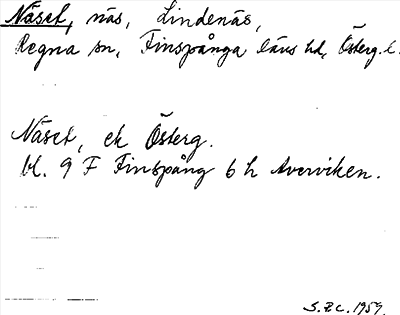 Näset, näs, Lindenäs,
Regna sn, Finspånga läns hd, Österg. l.
Näset, ek Österg.
bl. 9 F Finspång 6 h Averviken.
S.E.C. 1959.